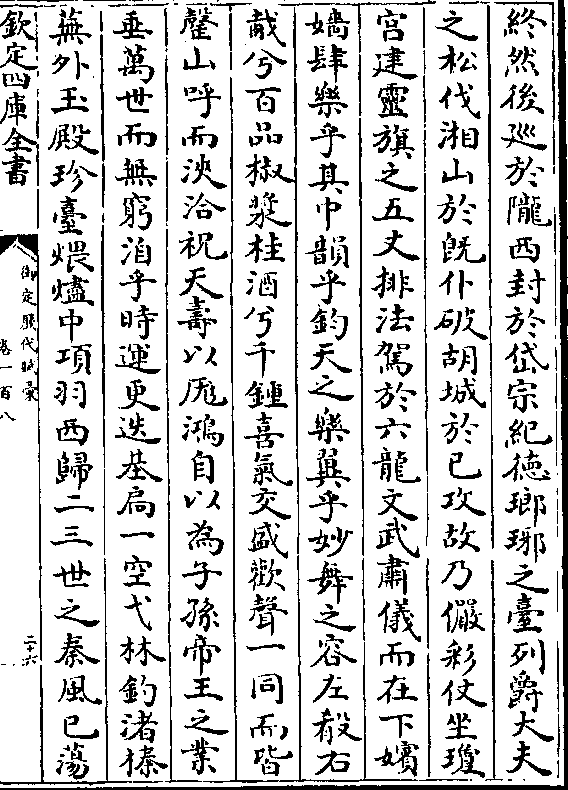 終然後廵於隴西封於岱宗紀徳瑯琊之臺列爵大夫
之松伐湘山於既仆破胡城於已攻故乃儼彩仗坐瓊
宫建靈旗之五丈排法駕於六龍文武肅儀而在下嬪
嬙肆樂乎其中韻乎鈞天之樂巽乎妙舞之容左殽右
胾兮百品椒漿桂酒兮千鍾喜氣交盛歡聲一同而皆
罄山呼而浹洽祝天壽以厖鴻自以為子孫帝王之業
垂萬世而無窮洎乎時運更迭基扃一空弋林釣渚榛
蕪外玉殿珍臺煨燼中項羽西歸二三世之秦風已蕩
欽定四庫全書
御定歷代賦彙
卷一百八
二十六